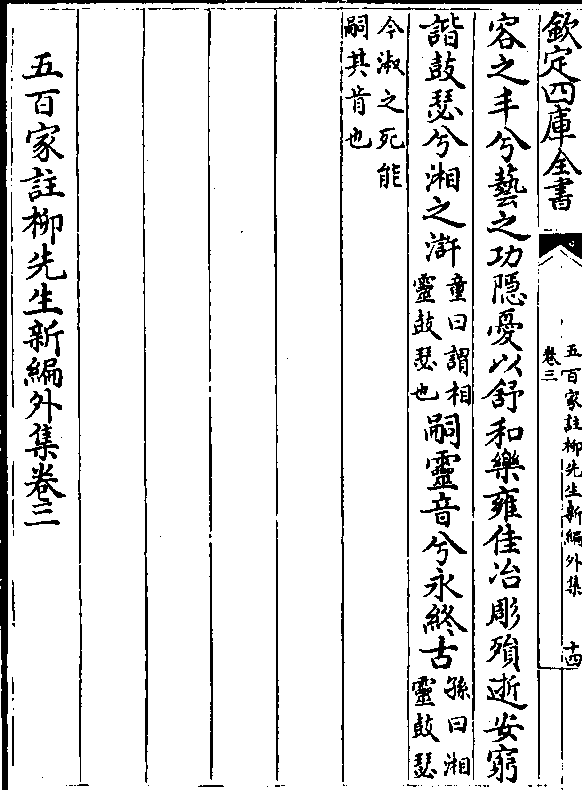 欽定四庫全書
五百家註柳先生新編外集
卷三
十四
容之丰兮藝之功隱憂以舒和樂雍佳冶彫殞逝安窮
諧鼓瑟兮湘之滸童曰謂相靈鼓瑟也嗣靈音兮永終古孫曰湘靈鼓瑟
今淑之死能嗣其肯也
五百家註柳先生新編外集卷三